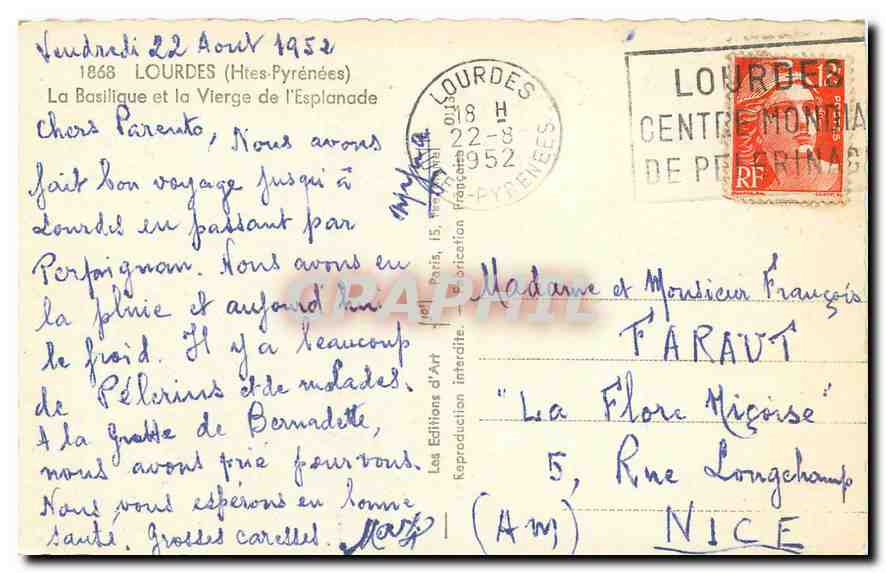 Vendredi 22 Aout 1952
1868 LOURDES (Htes-Pyrénées)
La Basilique et la Vierge de l'Esplanade
Chers Parents, Nous avons
fait bon voyage jusqu'à
Lourdes en passant par
Perpignan. Nous avons eu
la pluie et aujourd'hui
le froid. Il y a beaucoup
de Pélerins et de malades.
A la Grotte de Bernadette,
nous avons prié pour vous.
Nous vous espérons en bonne
santé. Grosses caresses.
LOURDES
18 H
22-8
1952
-PYRENEES
LOURDES
CENTRE MONDIA
DE PELERINAG
18F
POSTES
RF
Les Editions d'Art
Paris, 15,
Reproduction interdite. Fabrication Française
CPAPHIL
Madame et Monsieur François
FARAUT
"La Flore Niçoise"
5, Rue Longchamp
(Am) NICE